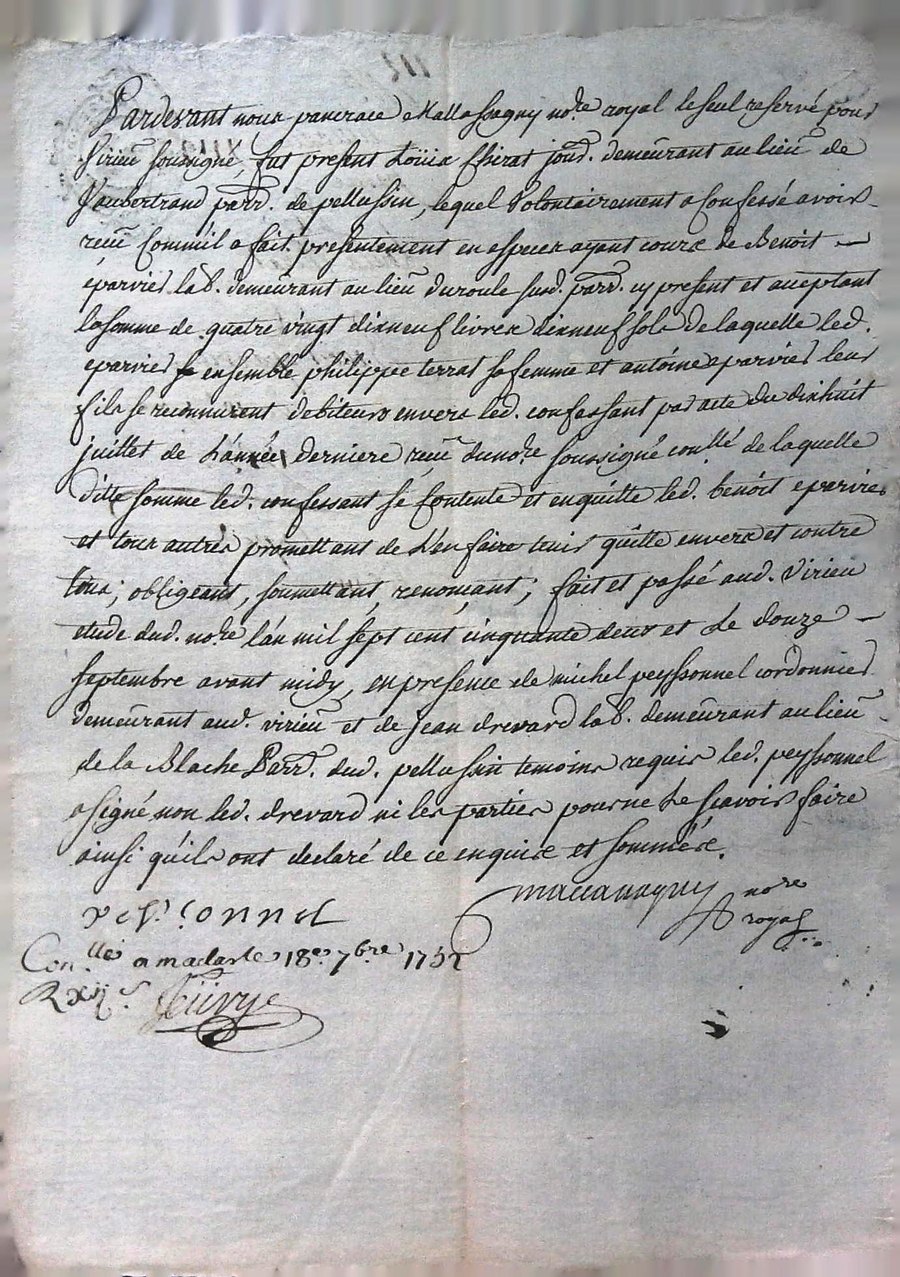 Pardevant nous pancrace Mallassagny no.re royal le seul reservé pour
Virieu soussigné, fut present Loüis jour.d demeurant au lieu de
Vaubertrand parr. de pellussin, lequel Volontairement a Confessé avoir
receu Comme il a fait presentement en especes ayant cours de Benoit —
éparvier lab. demeurant au lieu du roule sud. parr. cy present et acceptant
la somme de quatre vingt dixneuf livres dixneuf sols de laquelle led.
eparvier ensemble philippe terrat sa femme et antoine eparvier leur
fils se reconnurent debiteurs envers led. confessant par acte du dixhuit
juillet de L'année derniere receu du no.re soussigné con.llé de laquelle
ditte somme led. confessant se Contente et en quitte led. benoit eparvier
et tous autres promettant de L'en faire tenir quitte envers et contre
tous; obligeant, soumettant, renonçant; fait et passé aud. Virieu
etude dud. no.re l'an mil sept cent cinquante deux et Le douze —
septembre avant midy, en presence de michel peyssonnel cordonnier
demeurant aud. virieu et de jean drevard lab. demeurant au lieu
de la Blache Parr. dud. pellussin temoins requis led. peyssonnel
a signé non led. drevard ni les parties pour ne Le scavoir faire
ainsi qu'ils ont declaré de ce enquis et sommés.
no.re
royal
Con.llé a malaste 18e 7bre 1752